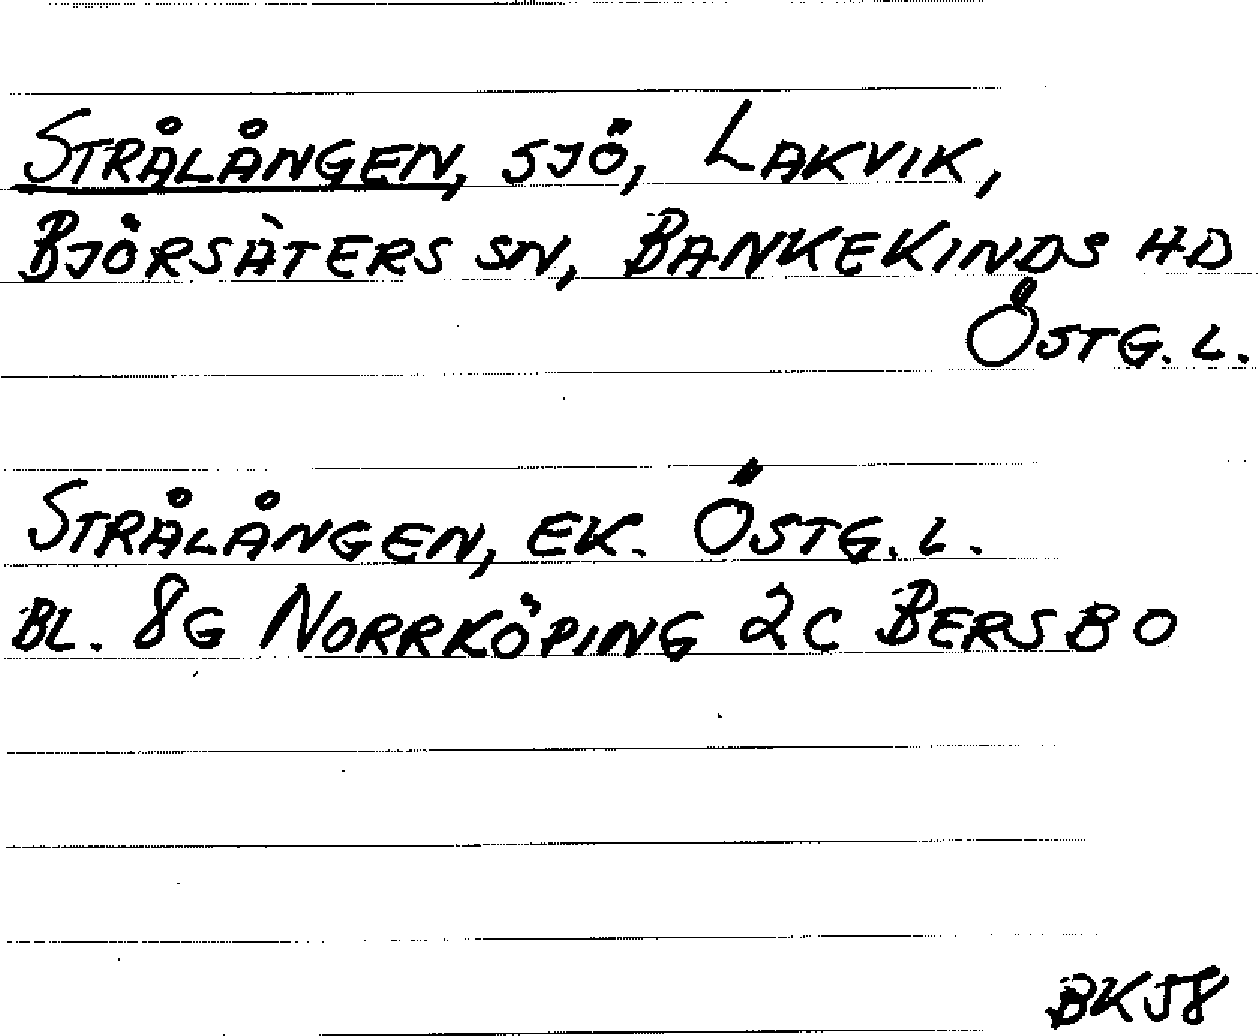 STRÅLÅNGEN, SJÖ, LAKVIK,
BJÖRSÄTERS SN, BANKEKINDS HD
ÖSTG. L.
STRÅLÅNGEN, EK. ÖSTG. L.
BL. 8G NORRKÖPING 2C BERSBO
BK58